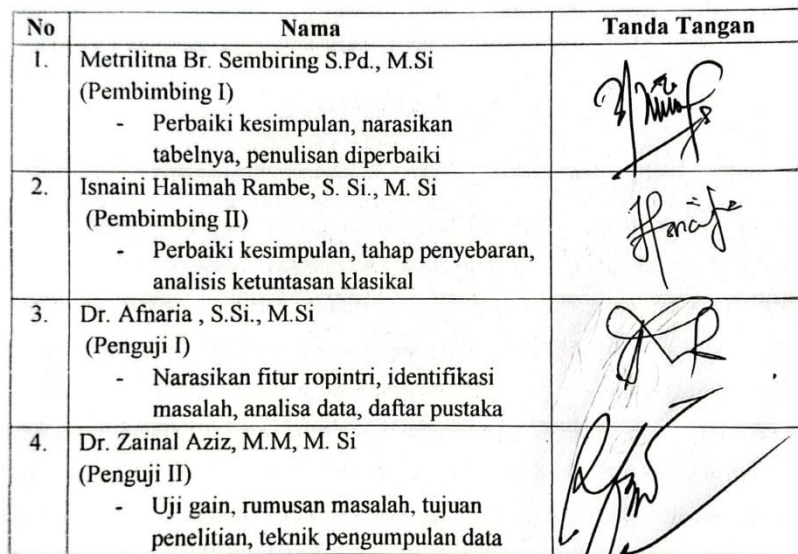 No Nama Tanda Tangan
1. Metrilitna Br. Sembiring S.Pd., M.Si
(Pembimbing I)
- Perbaiki kesimpulan, narasikan
tabelnya, penulisan diperbaiki
2. Isnaini Halimah Rambe, S. Si., M. Si
(Pembimbing II)
- Perbaiki kesimpulan, tahap penyebaran,
analisis ketuntasan klasikal
3. Dr. Afnaria , S.Si., M.Si
(Penguji I)
- Narasikan fitur ropintri, identifikasi
masalah, analisa data, daftar pustaka
4. Dr. Zainal Aziz, M.M, M. Si
(Penguji II)
- Uji gain, rumusan masalah, tujuan
penelitian, teknik pengumpulan data